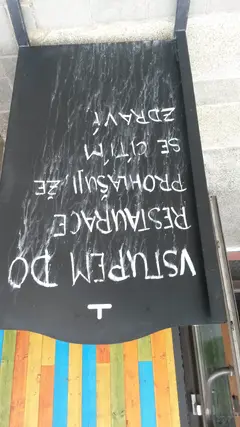 VSTUPEM DO
RESTAURACE
PROHLAŠUJI, ŽE
SE CÍTÍM
ZDRAVÍ